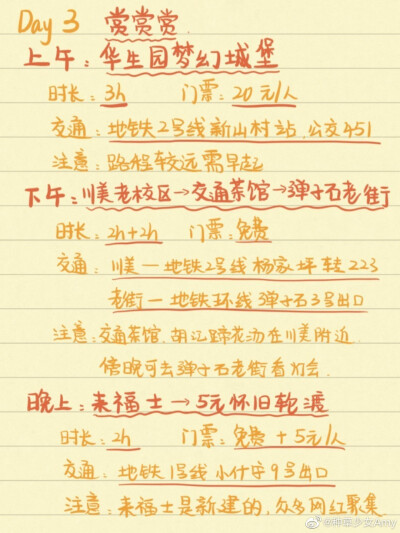 Day 3 赏赏赏
上午：华生园梦幻城堡
时长：3h 门票：20元/人
交通：地铁2号线新山村站，公交451
注意：路程较远需早起
下午：川美老校区→交通茶馆→弹子石老街
时长：2h+2h 门票：免费
交通：川美—地铁2号线杨家坪转223
老街—地铁环线弹子石3号出口
注意：交通茶馆，胡记蹄花汤在川美附近，
傍晚可去弹子石老街看灯会．
晚上：来福士→5元怀旧轮渡
时长：2h 门票：免费+5元/人
交通：地铁1号线小什字9号出口
注意：来福士是新建的，众多网红聚集
@种草少女Amy